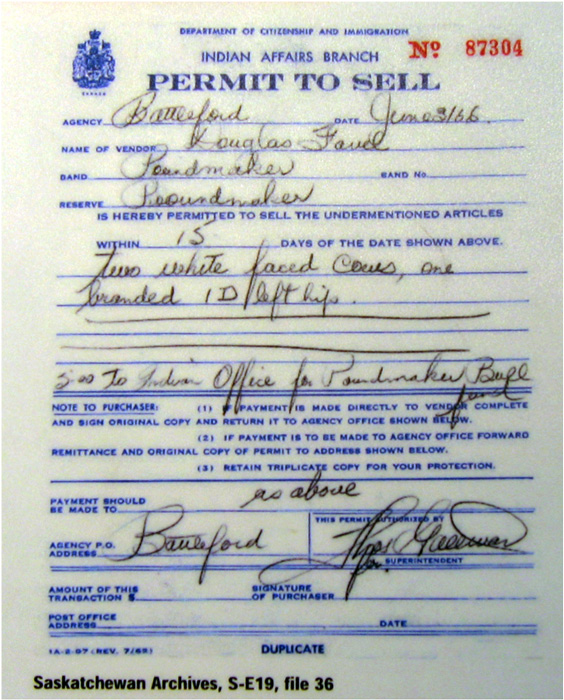 DEPARTMENT OF CITIZENSHIP AND IMMIGRATION
INDIAN AFFAIRS BRANCH
No 87304
CANADA
PERMIT TO SELL
AGENCY Battleford DATE June 3/66.
NAME OF VENDOR Douglas Favel
BAND Poundmaker BAND No.
RESERVE Pooundmaker
IS HEREBY PERMITTED TO SELL THE UNDERMENTIONED ARTICLES
WITHIN 15 DAYS OF THE DATE SHOWN ABOVE.
two white faced cows, one
branded 1D left hip.
5 00 To Indian Office for Poundmaker Bull
fund
NOTE TO PURCHASER: (1) IF PAYMENT IS MADE DIRECTLY TO VENDOR COMPLETE
AND SIGN ORIGINAL COPY AND RETURN IT TO AGENCY OFFICE SHOWN BELOW.
(2) IF PAYMENT IS TO BE MADE TO AGENCY OFFICE FORWARD
REMITTANCE AND ORIGINAL COPY OF PERMIT TO ADDRESS SHOWN BELOW.
(3) RETAIN TRIPLICATE COPY FOR YOUR PROTECTION.
PAYMENT SHOULD
BE MADE TO as above
THIS PERMIT AUTHORIZED BY
AGENCY P.O.
ADDRESS Battleford
for SUPERINTENDENT
AMOUNT OF THIS
TRANSACTION $
SIGNATURE
OF PURCHASER
POST OFFICE
ADDRESS DATE
IA-2-97 (REV. 7/65) DUPLICATE
Saskatchewan Archives, S-E19, file 36